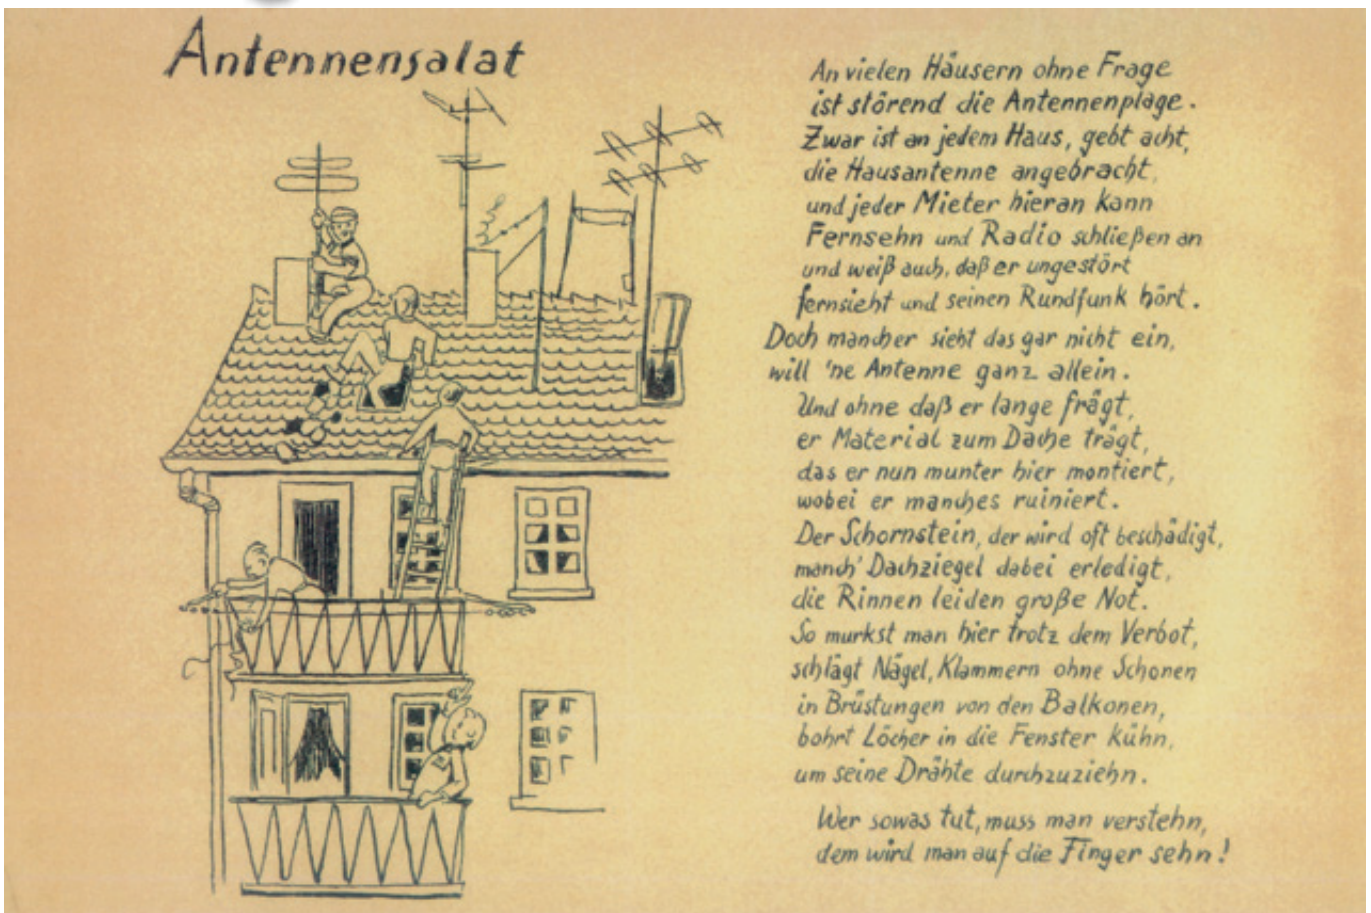 Antennensalat
An vielen Häusern ohne Frage
ist störend die Antennenplage.
Zwar ist an jedem Haus, gebt acht,
die Hausantenne angebracht,
und jeder Mieter hieran kann
Fernsehn und Radio schließen an
und weiß auch, daß er ungestört
fernsieht und seinen Rundfunk hört.
Doch mancher sieht das gar nicht ein,
will 'ne Antenne ganz allein.
Und ohne daß er lange frägt,
er Material zum Dache trägt,
das er nun munter hier montiert,
wobei er manches ruiniert.
Der Schornstein, der wird oft beschädigt,
manch' Dachziegel dabei erledigt,
die Rinnen leiden große Not.
So murkst man hier trotz dem Verbot,
schlägt Nägel, Klammern ohne Schonen
in Brüstungen von den Balkonen,
bohrt Löcher in die Fenster kühn,
um seine Drähte durchzuziehn.
Wer sowas tut, muss man verstehn,
dem wird man auf die Finger sehn!